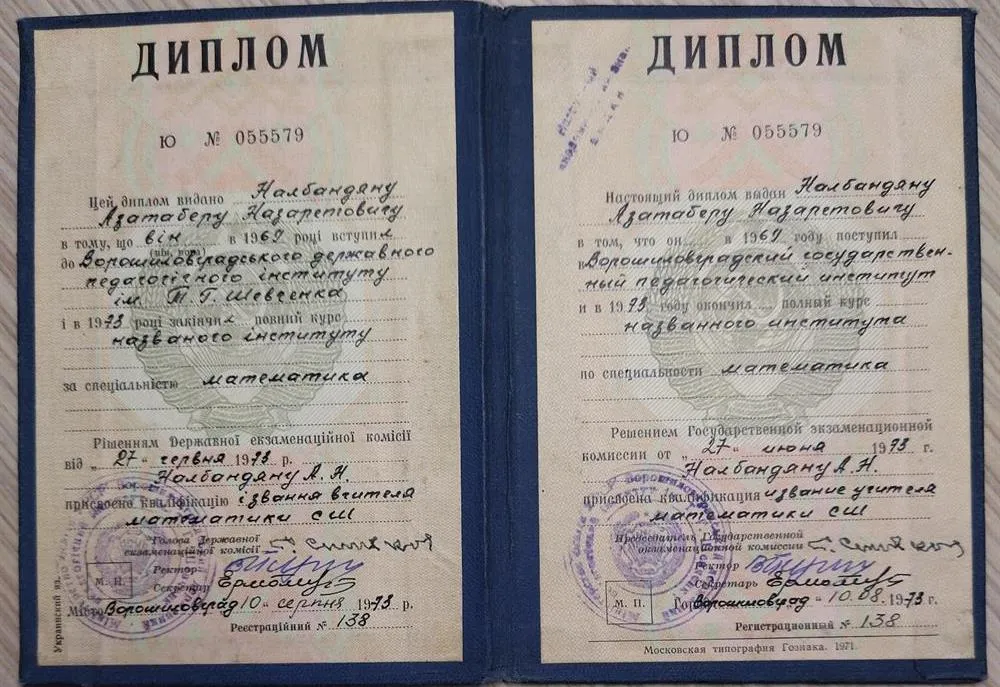 ДИПЛОМ
Ю № 055579
Цей диплом видано Налбандяну
Азатаберу Назаретовичу
в тому, що він в 1969 році вступив
(він, вона)
до Ворошиловградського державного
педагогічного інституту
ім. Т. Г. Шевченка
і в 1973 році закінчив повний курс
названого інституту
за спеціальністю математика
Рішенням Державної екзаменаційної комісії
від „27“ червня 1973 р.
Налбандяну А. Н.
присвоєно кваліфікацію і звання вчителя
математики СШ
Голова Державної
екзаменаційної комісії
Ректор
Секретар
М. П.
Місто Ворошиловград 10 „ серпня 1973 р.
Реєстраційний № 138
Украинский яз.
ДИПЛОМ
Ю № 055579
Настоящий диплом выдан Налбандяну
Азатаберу Назаретовичу
в том, что он в 1969 году поступил
в Ворошиловградский государствен-
ный педагогический институт
и в 1973 году окончил полный курс
названного института
по специальности математика
Решением Государственной экзаменационной
комиссии от „27“ июня 1973 г.
Налбандяну А. Н.
присвоена квалификация и звание учителя
математики СШ
Председатель Государственной
экзаменационной комиссии
Ректор
Секретарь
М. П.
Город Ворошиловград „10.08. 1973 г.
Регистрационный № 138
Московская типография Гознака. 1971.